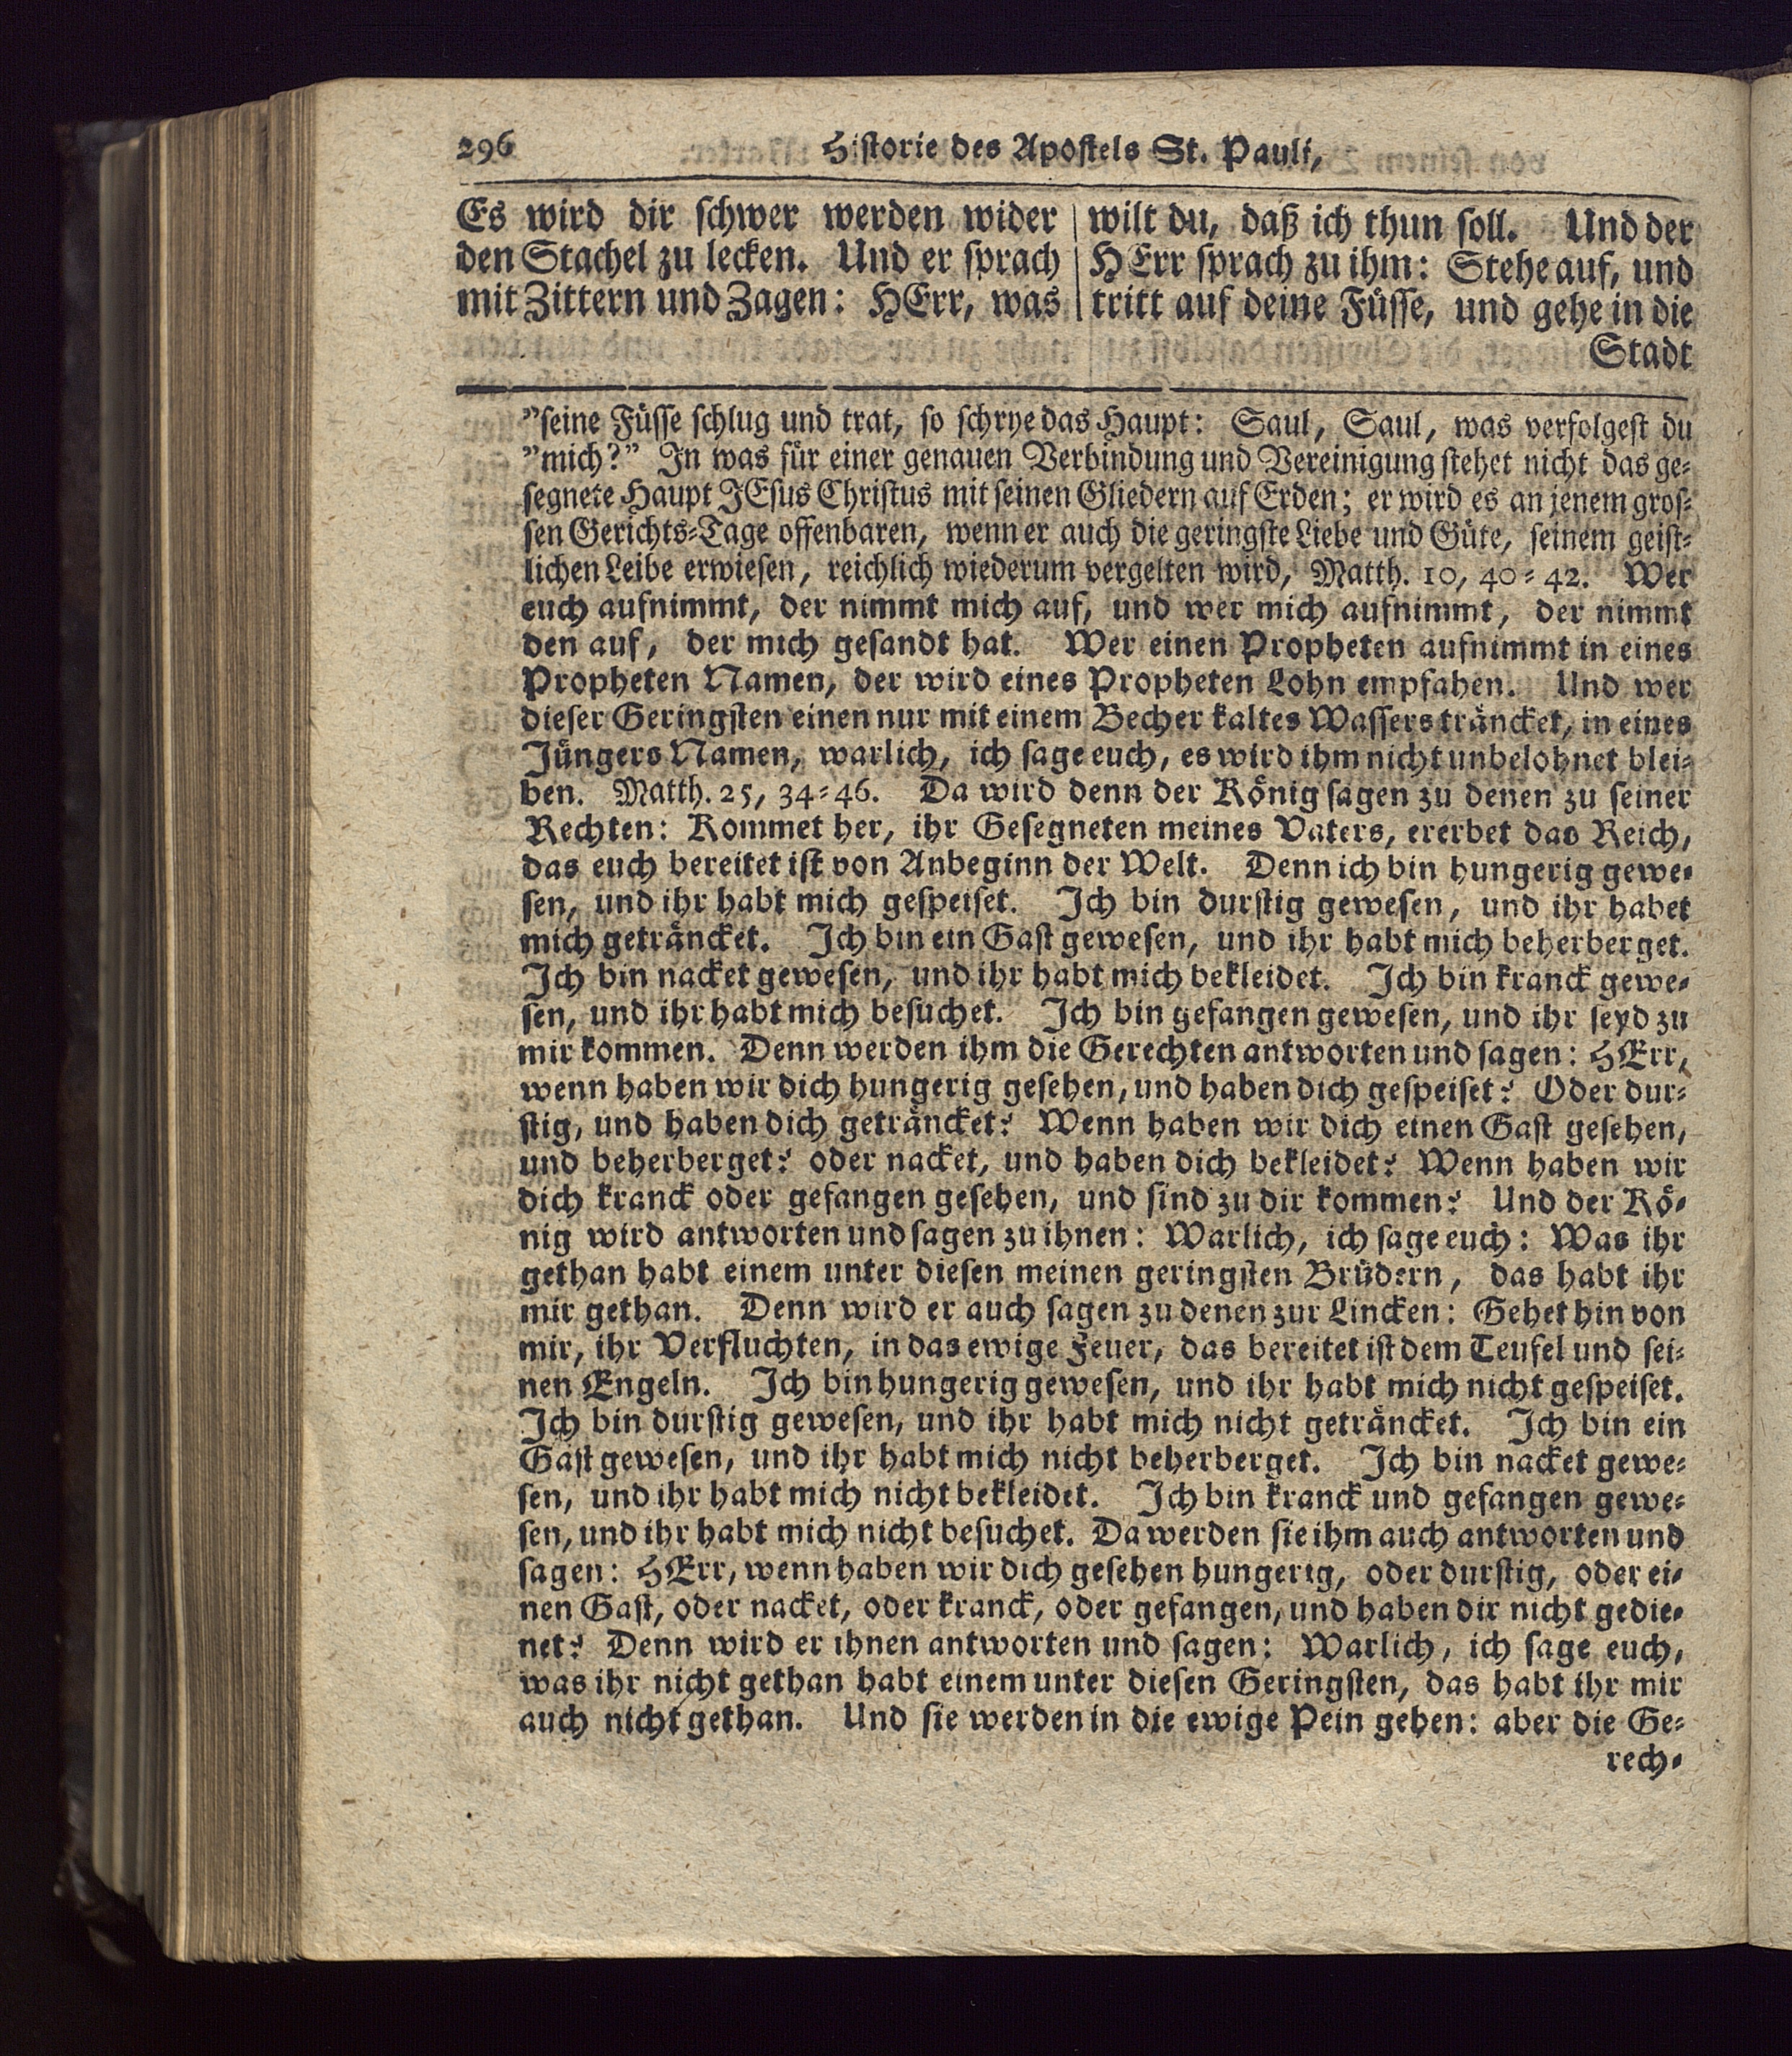 296
Historie des Apostels St. Pauli,
Es wird dir schwer werden wider
den Stachel zu lecken. Und er sprach
mit Zittern und Zagen: HErr, was
wilt du, daß ich thun soll. Und der
HErr sprach zu ihm: Stehe auf, und
tritt auf deine Füsse, und gehe in die
Stadt
"seine Füsse schlug und trat, so schrye das Haupt: Saul, Saul, was verfolgest du
"mich?" In was für einer genauen Verbindung und Vereinigung stehet nicht das ge-
segnete Haupt JEsus Christus mit seinen Gliedern auf Erden; er wird es an jenem gros-
sen Gerichts-Tage offenbaren, wenn er auch die geringste Liebe und Güte, seinem geist-
lichen Leibe erwiesen, reichlich wiederum vergelten wird, Matth. 10, 40-42. Wer
euch aufnimmt, der nimmt mich auf, und wer mich aufnimmt, der nimmt
den auf, der mich gesandt hat. Wer einen Propheten aufnimmt in eines
Propheten Namen, der wird eines Propheten Lohn empfahen. Und wer
dieser Geringsten einen nur mit einem Becher kaltes Wassers träncket, in eines
Jüngers Namen, warlich, ich sage euch, es wird ihm nicht unbelohnet blei-
ben. Matth. 25, 34-46. Da wird denn der König sagen zu denen zu seiner
Rechten: Kommet her, ihr Gesegneten meines Vaters, ererbet das Reich,
das euch bereitet ist von Anbeginn der Welt. Denn ich bin hungerig gewe-
sen, und ihr habt mich gespeiset. Ich bin durstig gewesen, und ihr habet
mich geträncket. Ich bin ein Gast gewesen, und ihr habt mich beherberget.
Ich bin nacket gewesen, und ihr habt mich bekleidet. Ich bin kranck gewe-
sen, und ihr habt mich besuchet. Ich bin gefangen gewesen, und ihr seyd zu
mir kommen. Denn werden ihm die Gerechten antworten und sagen: HErr,
wenn haben wir dich hungerig gesehen, und haben dich gespeiset? Oder dur-
stig, und haben dich geträncket? Wenn haben wir dich einen Gast gesehen,
und beherberget? oder nacket, und haben dich bekleidet? Wenn haben wir
dich kranck oder gefangen gesehen, und sind zu dir kommen? Und der Kö-
nig wird antworten und sagen zu ihnen: Warlich, ich sage euch: Was ihr
gethan habt einem unter diesen meinen geringsten Brüdern, das habt ihr
mir gethan. Denn wird er auch sagen zu denen zur Lincken: Gehet hin von
mir, ihr Verfluchten, in das ewige Feuer, das bereitet ist dem Teufel und sei-
nen Engeln. Ich bin hungerig gewesen, und ihr habt mich nicht gespeiset.
Ich bin durstig gewesen, und ihr habt mich nicht geträncket. Ich bin ein
Gast gewesen, und ihr habt mich nicht beherberget. Ich bin nacket gewe-
sen, und ihr habt mich nicht bekleidet. Ich bin kranck und gefangen gewe-
sen, und ihr habt mich nicht besuchet. Da werden sie ihm auch antworten und
sagen: HErr, wenn haben wir dich gesehen hungerig, oder durstig, oder ei-
nen Gast, oder nacket, oder kranck, oder gefangen, und haben dir nicht gedie-
net? Denn wird er ihnen antworten und sagen: Warlich, ich sage euch,
was ihr nicht gethan habt einem unter diesen Geringsten, das habt ihr mir
auch nicht gethan. Und sie werden in die ewige Pein gehen: aber die Ge-
rech-